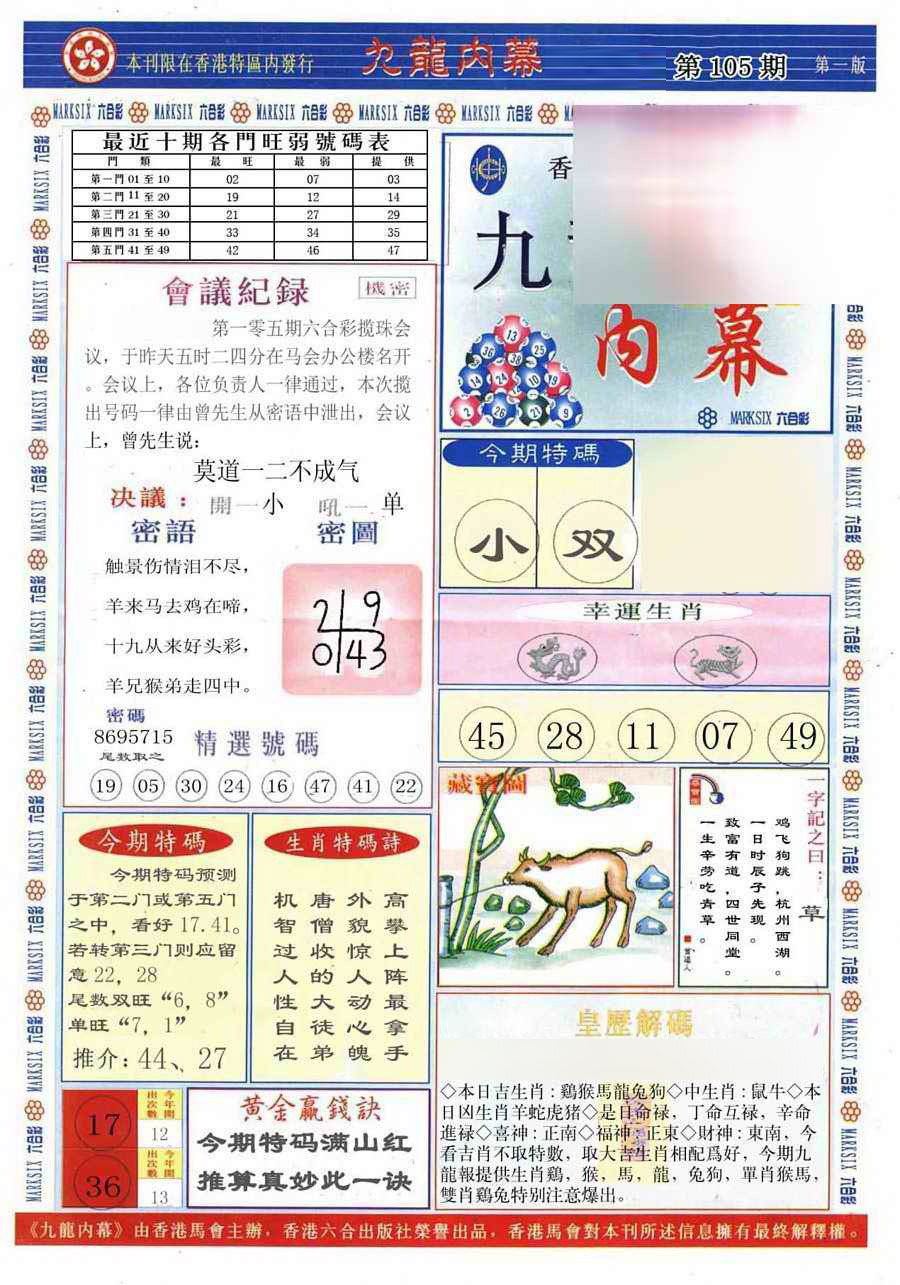 本刊限在香港特區內發行
九龍內幕
第 105 期
第一版
MARKSIX 六合彩 MARKSIX 六合彩 MARKSIX 六合彩 MARKSIX 六合彩 MARKSIX 六合彩
最近十期各門旺弱號碼表
門 類 最 旺 最 弱 提 供
第一門 01 至 10 02 07 03
第二門 11 至 20 19 12 14
第三門 21 至 30 21 27 29
第四門 31 至 40 33 34 35
第五門 41 至 49 42 46 47
會議紀録
機密
第一零五期六合彩揽珠会
议，于昨天五时二四分在马会办公楼名开
。会议上，各位负责人一律通过，本次揽
出号码一律由曾先生从密语中泄出，会议
上，曾先生说：
莫道一二不成气
决議：開一小 吼一 单
密語
密圖
触景伤情泪不尽，
羊来马去鸡在啼，
十九从来好头彩，
羊兄猴弟走四中。
2 9
0 43
密碼
8695715
尾数取之
精選號碼
19 05 30 24 16 47 41 22
香
九
内幕
13
36 38 25
14 24 10 19
2 26 21 9
MARKSIX 六合彩
今期特碼
小 双
幸運生肖
45 28 11 07 49
藏寶圖
一字記之曰：草
鸡飞狗跳，杭州西湖。
一日时辰子先现。
致富有道，四世同堂。
一生辛劳吃青草。
曾道人
今期特碼
今期特码预测
于第二门或第五门
之中，看好 17.41。
若转第三门则应留
意 22，28
尾数双旺“6，8”
单旺“7，1”
推介：44、27
生肖特碼詩
高攀上阵最拿手
外貌惊人动心魄
唐僧收的大徒弟
机智过人性自在
皇歷解碼
◇本日吉生肖：鷄猴馬龍兔狗◇中生肖：鼠牛◇本
日凶生肖羊蛇虎猪◇是日命禄，丁命互禄，辛命
進禄◇喜神：正南◇福神：正東◇財神：東南，今
看吉肖不取特數，取大吉生肖相配爲好，今期九
龍報提供生肖鷄，猴，馬，龍，兔狗，單肖猴馬，
雙肖鷄兔特别注意爆出。
17
今年開
出次數
12
36
今年開
出次數
13
黄金贏錢訣
今期特码满山红
推算真妙此一诀
《九龍内幕》由香港馬會主辦，香港六合出版社榮譽出品，香港馬會對本刊所述信息擁有最終解釋權。